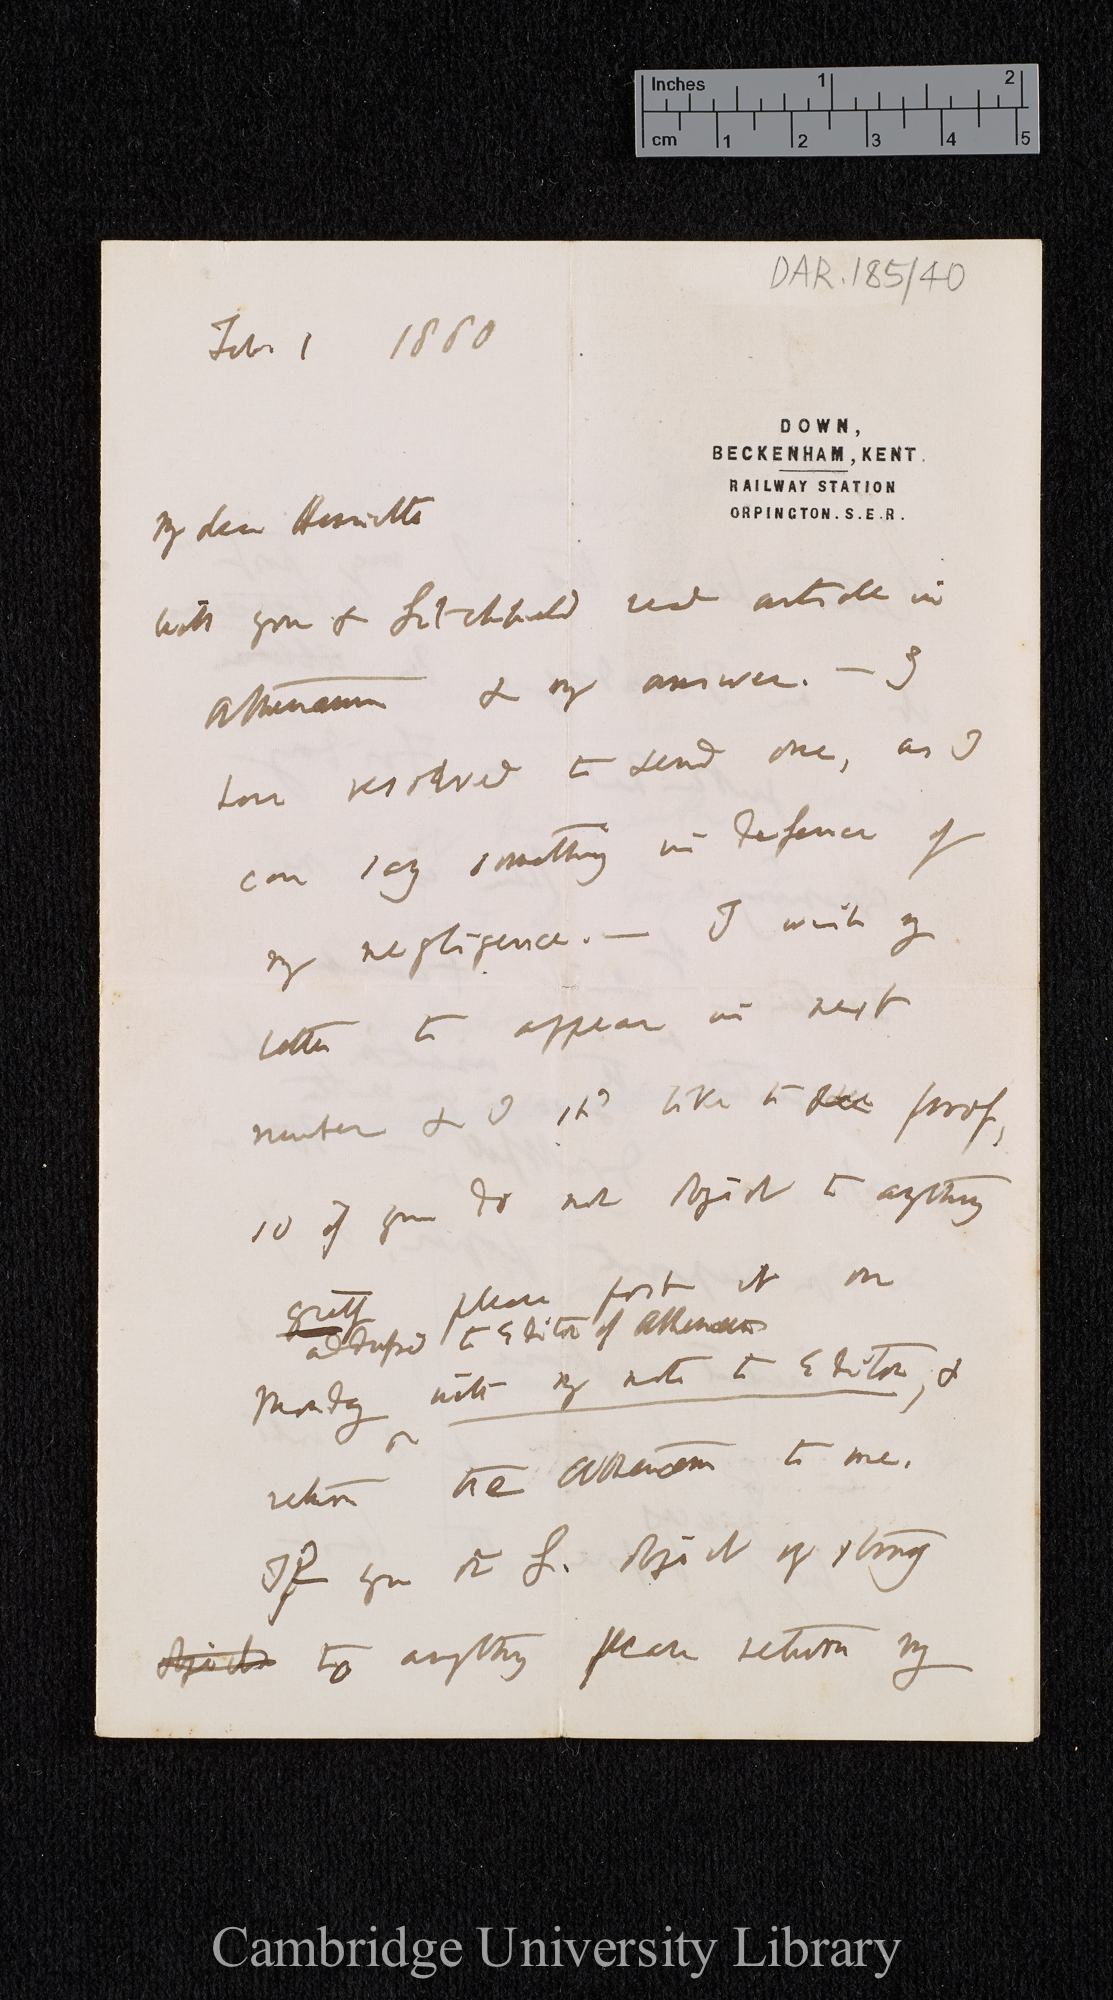 Inches 1 2
cm 1 2 3 4 5
DAR.185/40
Feb. 1 1880
DOWN,
BECKENHAM, KENT.
RAILWAY STATION
ORPINGTON. S.E.R.
My dear Henrietta
Will you & Litchfield read article in
Athenæum & my answer. — I
have resolved to send one, as I
can say something in defence of
my negligence.— I wish my
letter to appear in next
number & I shd like to see proof,
so if you do not object to anything
greatly please post it on
addressed to Editor of Athenæum
Monday with my note to Editor, &
return the Athenæum to me.
If you or L. object very strongly
objects to anything please return my
Cambridge University Library